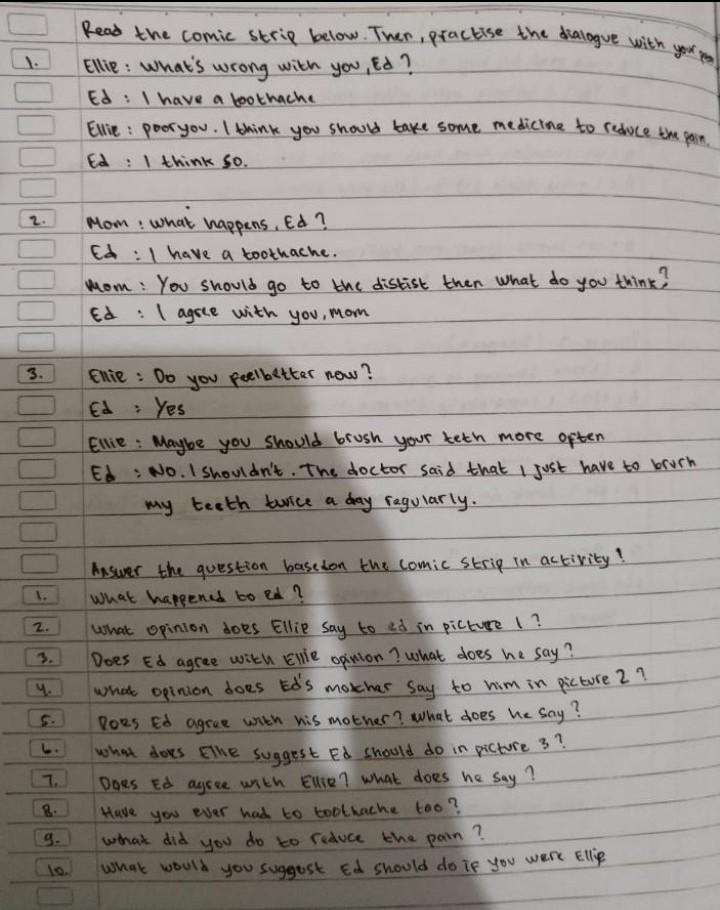 Read the comic strip below. Then, practise the dialogue with your
1. Ellie : What's wrong with you, Ed ?
Ed : I have a toothache
Ellie : poor you. I think you should take some medicine to reduce the pain.
Ed : I think so.
2. Mom : what happens, Ed ?
Ed : I have a toothache.
Mom : You should go to the distist then what do you think?
Ed : I agree with you, Mom
3. Ellie : Do you feelbetter now ?
Ed : Yes
Ellie : Maybe you should brush your teth more often
Ed : No. I shouldn't. The doctor said that I just have to brurh
my teeth twice a day regularly.
Answer the question basedon the comic strip in activity !
1. What happened to ed ?
2. What opinion does Ellie say to ed in picture 1 ?
3. Does Ed agree with Ellie opinion ? what does he say ?
4. what opinion does Ed's mother say to him in picture 2 ?
5. Does Ed agree with his mother ? what does he say ?
6. what does Ellie suggest Ed should do in picture 3 ?
7. Does Ed agree with Ellie ? what does he say ?
8. Have you ever had to toothache too ?
9. what did you do to reduce the pain ?
10. What would you suggest Ed should do if you were Ellie